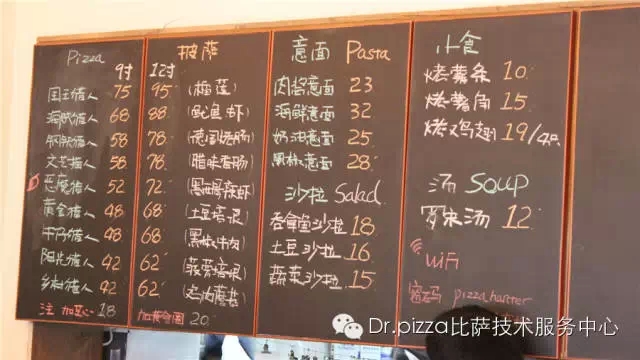 Pizza 披萨
9寸 12寸
国王猎人 75 95 (榴莲)
海贼猎人 68 88 (鱿鱼虾)
钢铁猎人 58 78 (德国烤肠)
文艺猎人 58 78 (腊味香肠)
恶魔猎人 52 72
黄金猎人 48 68 (土豆培根)
牛仔猎人 48 68 (黑椒牛肉)
阳光猎人 42 62 (菠萝培根)
乡村猎人 42 62 (鸡肉蘑菇)
注 加芯 18
20
意面 Pasta
肉酱意面 23
海鲜意面 32
奶油意面 25
黑椒意面 28
沙拉 Salad
吞拿鱼沙拉 18
土豆沙拉 16
蔬菜沙拉 15
小食
烤薯条 10
烤薯角 15
烤鸡翅 19/4只
汤 Soup
罗宋汤 12
WiFi
密码 pizzahunter
Dr.pizza比萨技术服务中心